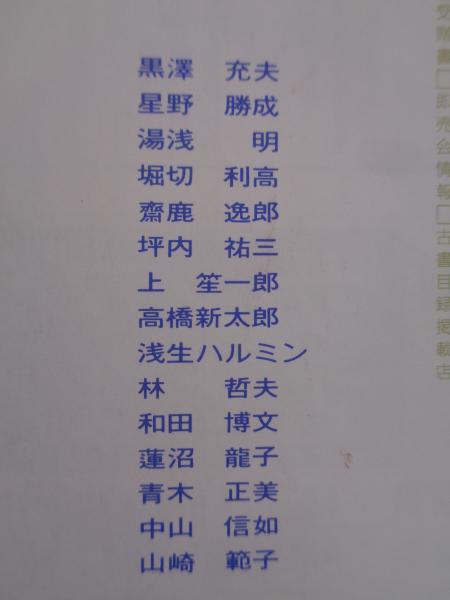 黒澤　充夫
星野　勝成
湯浅　　明
堀切　利高
齋鹿　逸郎
坪内　祐三
上　笙一郎
高橋新太郎
浅生ハルミン
林　　哲夫
和田　博文
蓮沼　龍子
青木　正美
中山　信如
山崎　範子
受贈書□即売会情報□古書目録掲載店